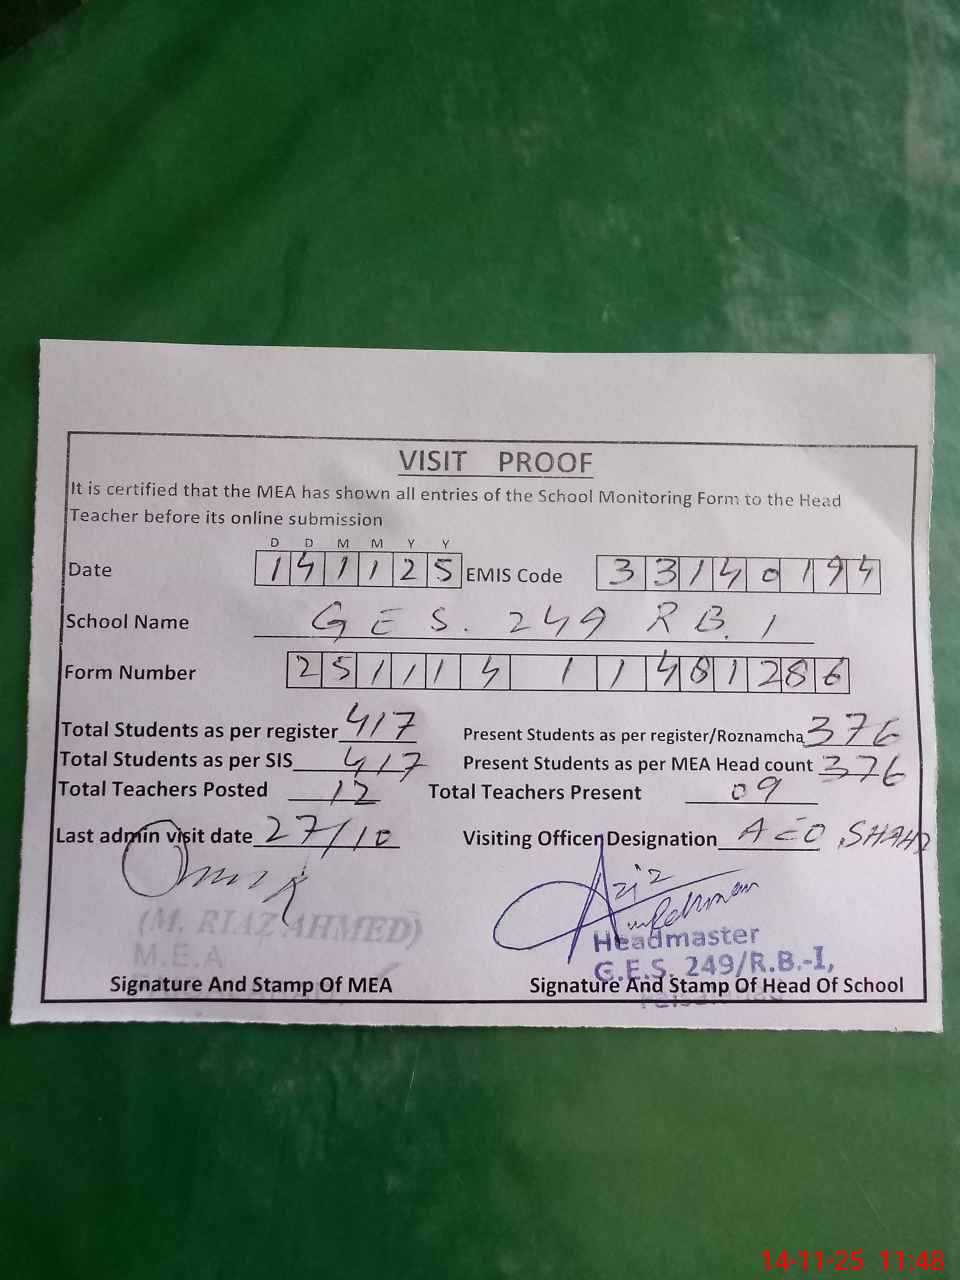 VISIT PROOF
It is certified that the MEA has shown all entries of the School Monitoring Form to the Head
Teacher before its online submission
D D M M Y Y
Date 141125 EMIS Code 33140194
School Name GES. 249 RB. 1
Form Number 25111411481286
Total Students as per register 417 Present Students as per register/Roznamcha 376
Total Students as per SIS 417 Present Students as per MEA Head count 376
Total Teachers Posted 12 Total Teachers Present 09
Last admin visit date 27/10 Visiting Officer Designation AEO
Aziz
(M. RIAZ AHMED)
Headmaster
M.E.A
G.E.S. 249/R.B.-I,
Signature And Stamp Of MEA Signature And Stamp Of Head Of School
14-11-25 11:48